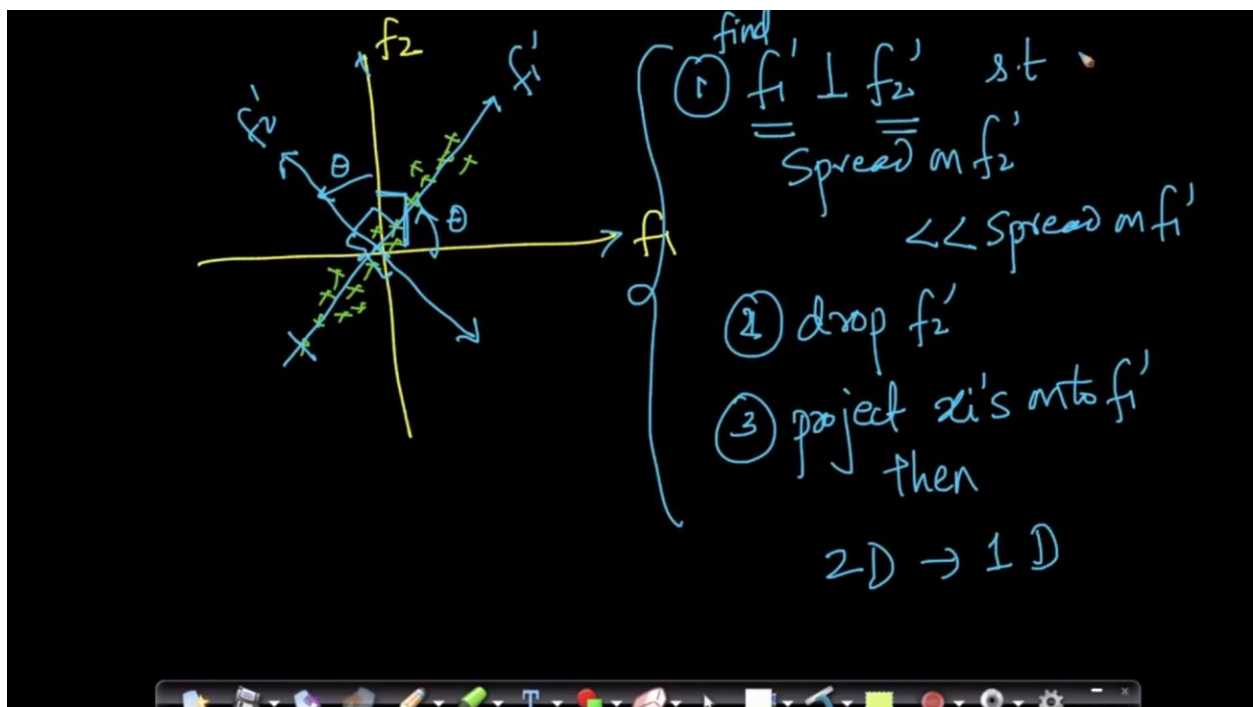 f2
f1'
f2'
θ
θ
f1
find
① f1' ⊥ f2' s.t
Spread on f2'
<< Spread on f1'
② drop f2'
③ project xi's onto f1'
then
2D → 1D
T